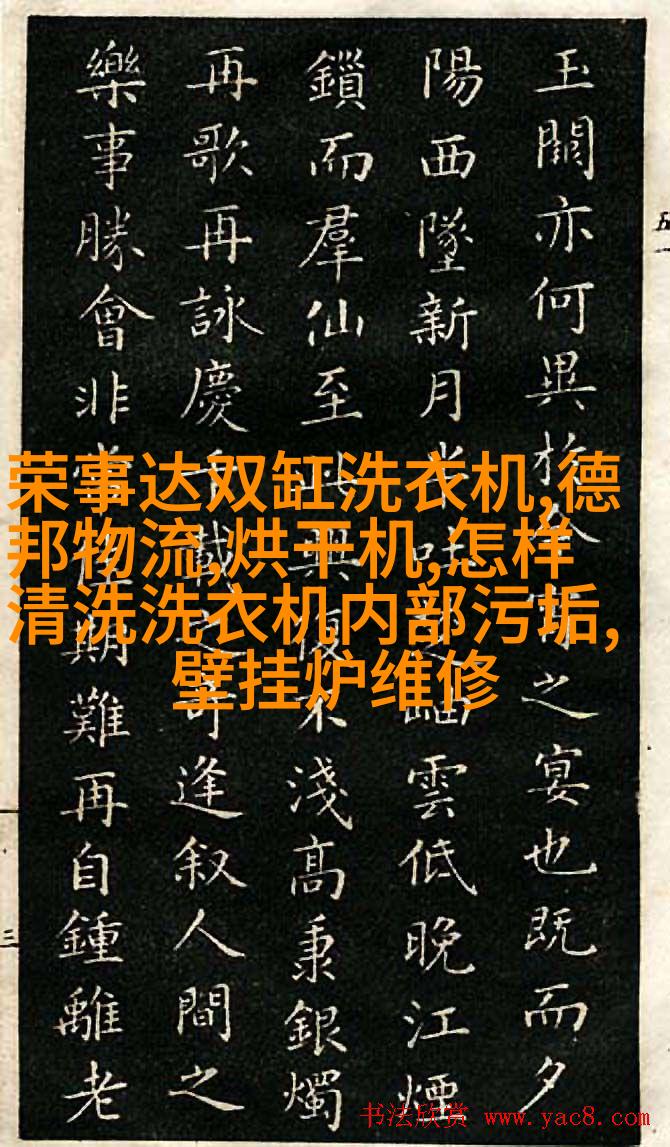 玉關亦何異於之宴也既而夕
陽西墜新月半吐岫雲低晚江煙
鎖而羣仙至此興復不淺高秉銀燭
再歌再詠慶千載之奇逢叙人間之
樂事勝會非常期難再自鍾離老
荣事达双缸洗衣机,德
邦物流,烘干机,怎样
清洗洗衣机内部污垢,
壁挂炉维修
三
书法欣赏 www.yac8.com